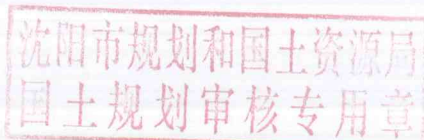 沈阳市规划和国土资源局
国土规划审核专用章